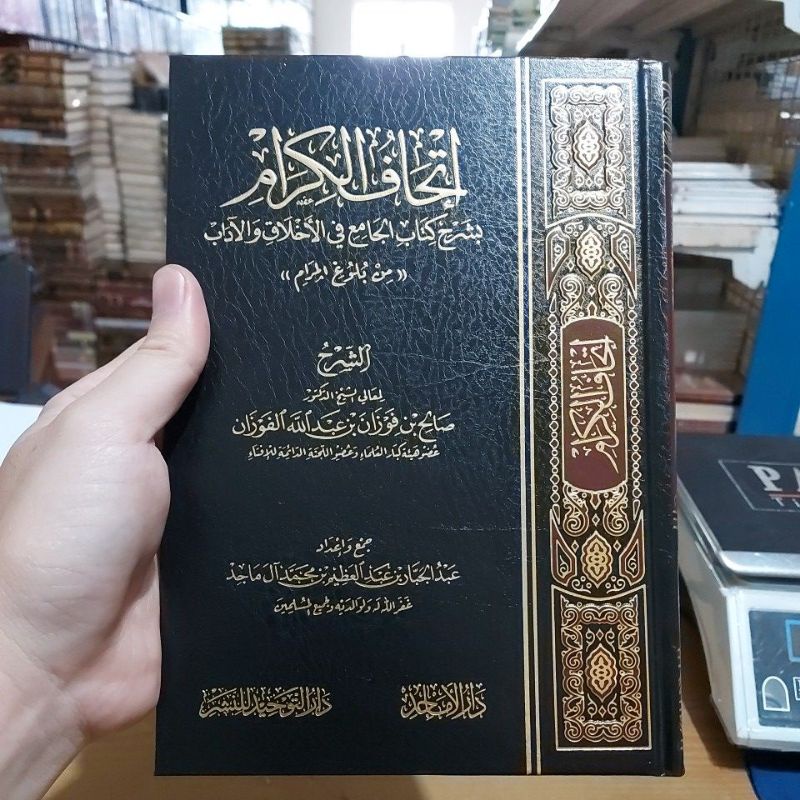 إتحاف الكرام
بشرح كتاب الجامع في الأخلاق والآداب
«من بلوغ المرام»
الشرح
لمعالي الشيخ الدكتور
صالح بن فوزان بن عبد الله الفوزان
عضو هيئة كبار العلماء وعضو اللجنة الدائمة للإفتاء
جمع وإعداد
عبد الجبار بن عبد العظيم بن محمد آل ماجد
غفر الله له ولوالديه ولجميع المسلمين
دار الأماجد
دار التوحيد للنشر
إتحاف الكرام